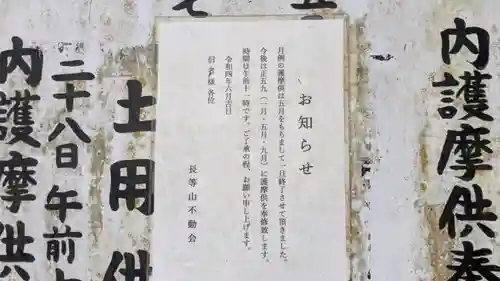 内護摩供奉
お知らせ
月例の護摩供は五月をもちまして一旦終了させて頂きました。
今後は正五九（一月・五月・九月）に護摩供を奉修致します。
時間は午前十一時です。ご了承の程、お願い申し上げます。
令和四年六月吉日
信者様 各位
長等山不動会
土用
供
二十八日午前
内護摩供